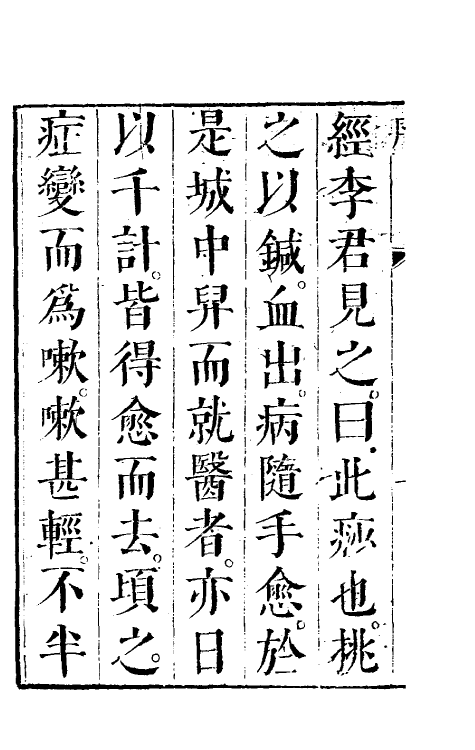 經李君見之。曰。此痧也。挑
之以鍼。血出。病隨手愈。於
是城中舁而就醫者。亦日
以千計。皆得愈而去。頃之。
症變而爲嗽。嗽甚輕。不半